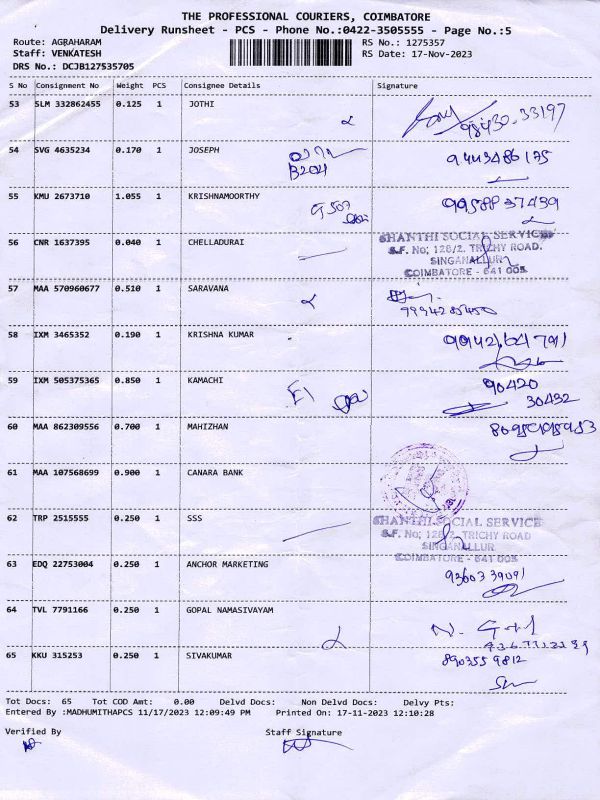 THE PROFESSIONAL COURIERS, COIMBATORE
Delivery Runsheet - PCS - Phone No.:0422-3505555 - Page No.:5
Route: AGRAHARAM
RS No.: 1275357
Staff: VENKATESH
RS Date: 17-Nov-2023
DRS No.: DCJB127535705
S No Consignment No Weight PCS Consignee Details Signature
53 SLM 332862455 0.125 1 JOTHI 98430-33197
54 SVG 4635234 0.170 1 JOSEPH B204 9443486175
55 KMU 2673710 1.055 1 KRISHNAMOORTHY G507 9958837439
56 CNR 1637395 0.040 1 CHELLADURAI
SHANTHI SOCIAL SERVICES
S.F. No; 128/2, TRICHY ROAD.
SINGANALLUR
COIMBATORE - 641 005
57 MAA 570960677 0.510 1 SARAVANA
58 IXM 3465352 0.190 1 KRISHNA KUMAR
59 IXM 505375365 0.850 1 KAMACHI 90420
30432
60 MAA 862309556 0.700 1 MAHIZHAN
61 MAA 107568699 0.900 1 CANARA BANK
62 TRP 2515555 0.250 1 SSS
SHANTHI SOCIAL SERVICE
S.F. No; 128/2, TRICHY ROAD
SINGANALLUR
COIMBATORE - 641 005
63 EDQ 22753004 0.250 1 ANCHOR MARKETING 9360339091
64 TVL 7791166 0.250 1 GOPAL NAMASIVAYAM
65 KKU 315253 0.250 1 SIVAKUMAR 8903559812
Tot Docs: 65 Tot COD Amt: 0.00 Delvd Docs: Non Delvd Docs: Delvy Pts:
Entered By :MADHUMITHAPCS 11/17/2023 12:09:49 PM Printed On: 17-11-2023 12:10:28
Verified By Staff Signature